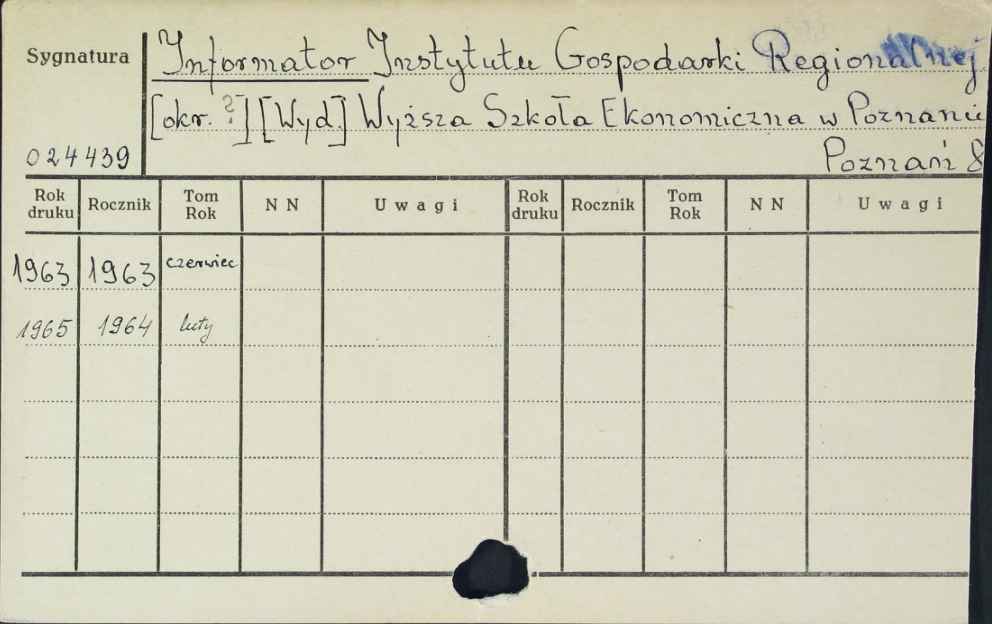 Sygnatura
Informator Instytutu Gospodarki Regionalnej
[okr. ?] [Wyd.] Wyższa Szkoła Ekonomiczna w Poznaniu
024439
Poznań 8
Rok druku Rocznik Tom Rok N N Uwagi Rok druku Rocznik Tom Rok N N Uwagi
1963 1963 czerwiec
1965 1964 luty